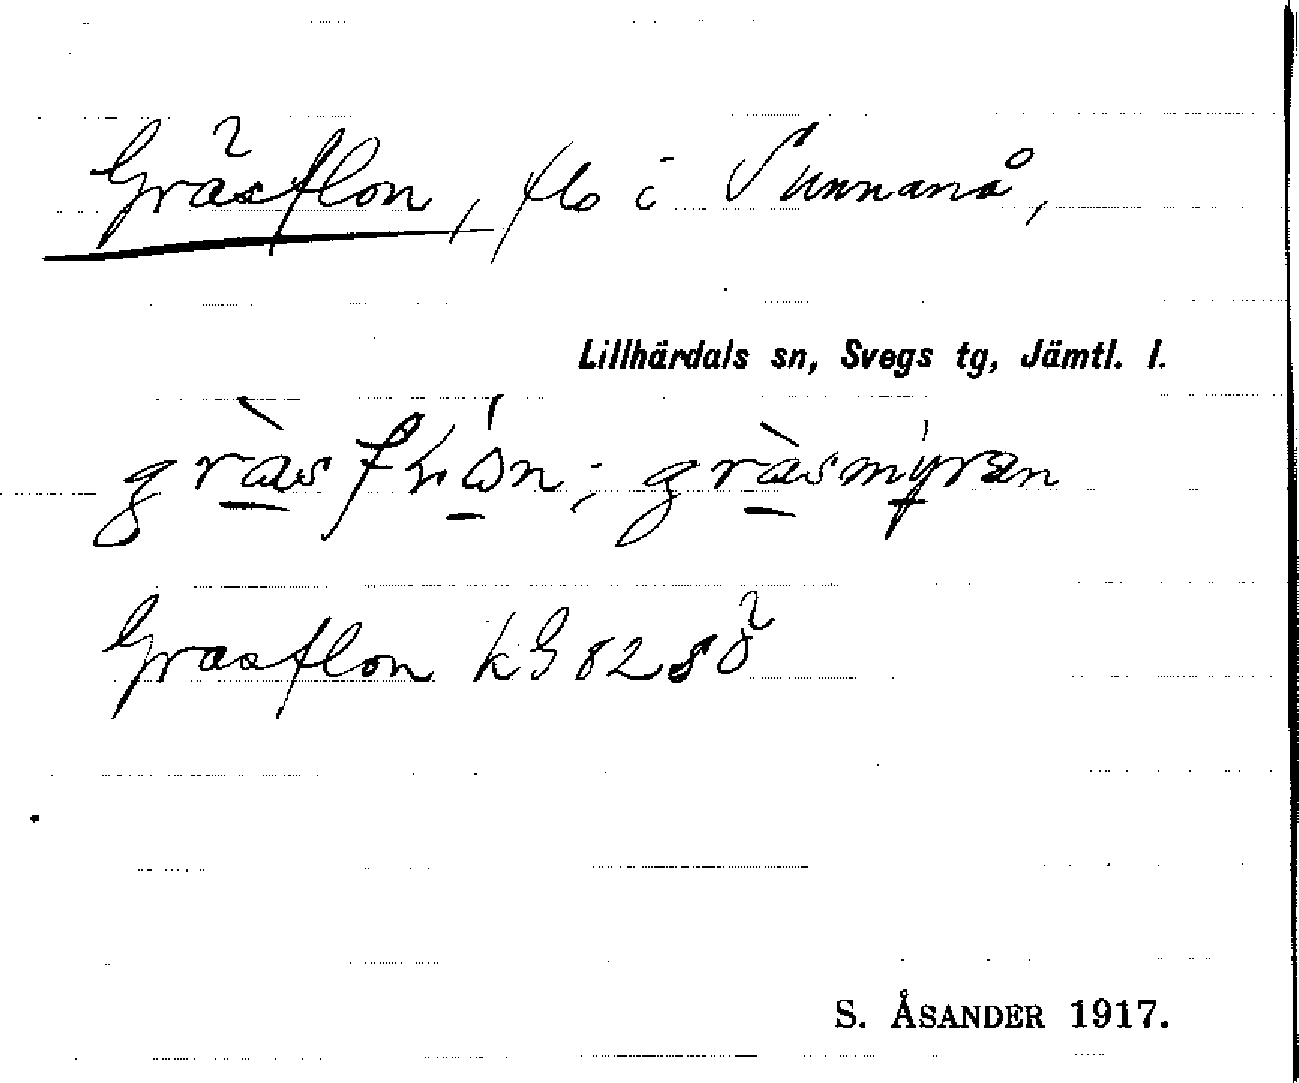 Gräsflon, flo i Sunnanå,
Lillhärdals sn, Svegs tg, Jämtl. l.
gräsmýran
Gräsflon kG 82 s8
S. ÅSANDER 1917.